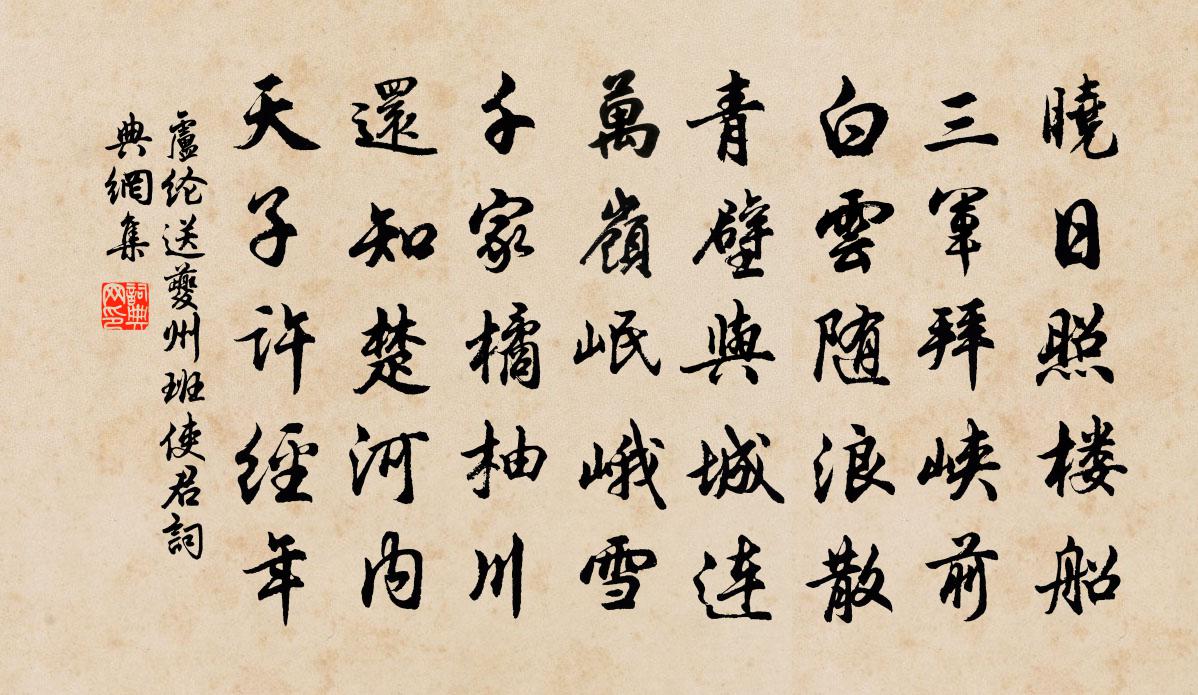 曉日照楼船
三軍拜峽前
白雲随浪散
青壁與城連
萬嶺岷峨雪
千家橘柚川
還知楚河内
天子許經年
盧纶送夔州班使君詞
典網集
詞典
网印